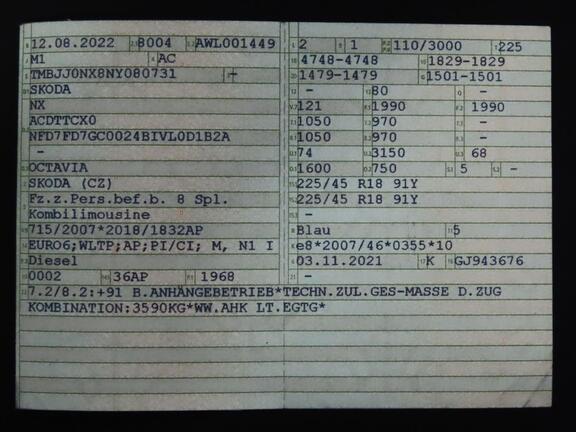 12.08.2022 8004 AWL001449
M1 AC
TMBJJ0NX8NY080731 -
SKODA
NX
ACDTTCX0
NFD7FD7GC0024BIVL0D1B2A
-
OCTAVIA
SKODA (CZ)
Fz.z.Pers.bef.b. 8 Spl.
Kombilimousine
715/2007*2018/1832AP
EURO6;WLTP;AP;PI/CI; M, N1 I
Diesel
0002 36AP 1968
2 1 110/3000 225
4748-4748 1829-1829
1479-1479 1501-1501
- 80 -
121 1990 1990
1050 970 -
1050 970 -
74 3150 68
1600 750 5 -
225/45 R18 91Y
225/45 R18 91Y
-
Blau 5
e8*2007/46*0355*10
03.11.2021 K GJ943676
-
7.2/8.2:+91 B.ANHÄNGEBETRIEB*TECHN.ZUL.GES-MASSE D.ZUG
KOMBINATION:3590KG*WW.AHK LT.EGTG*